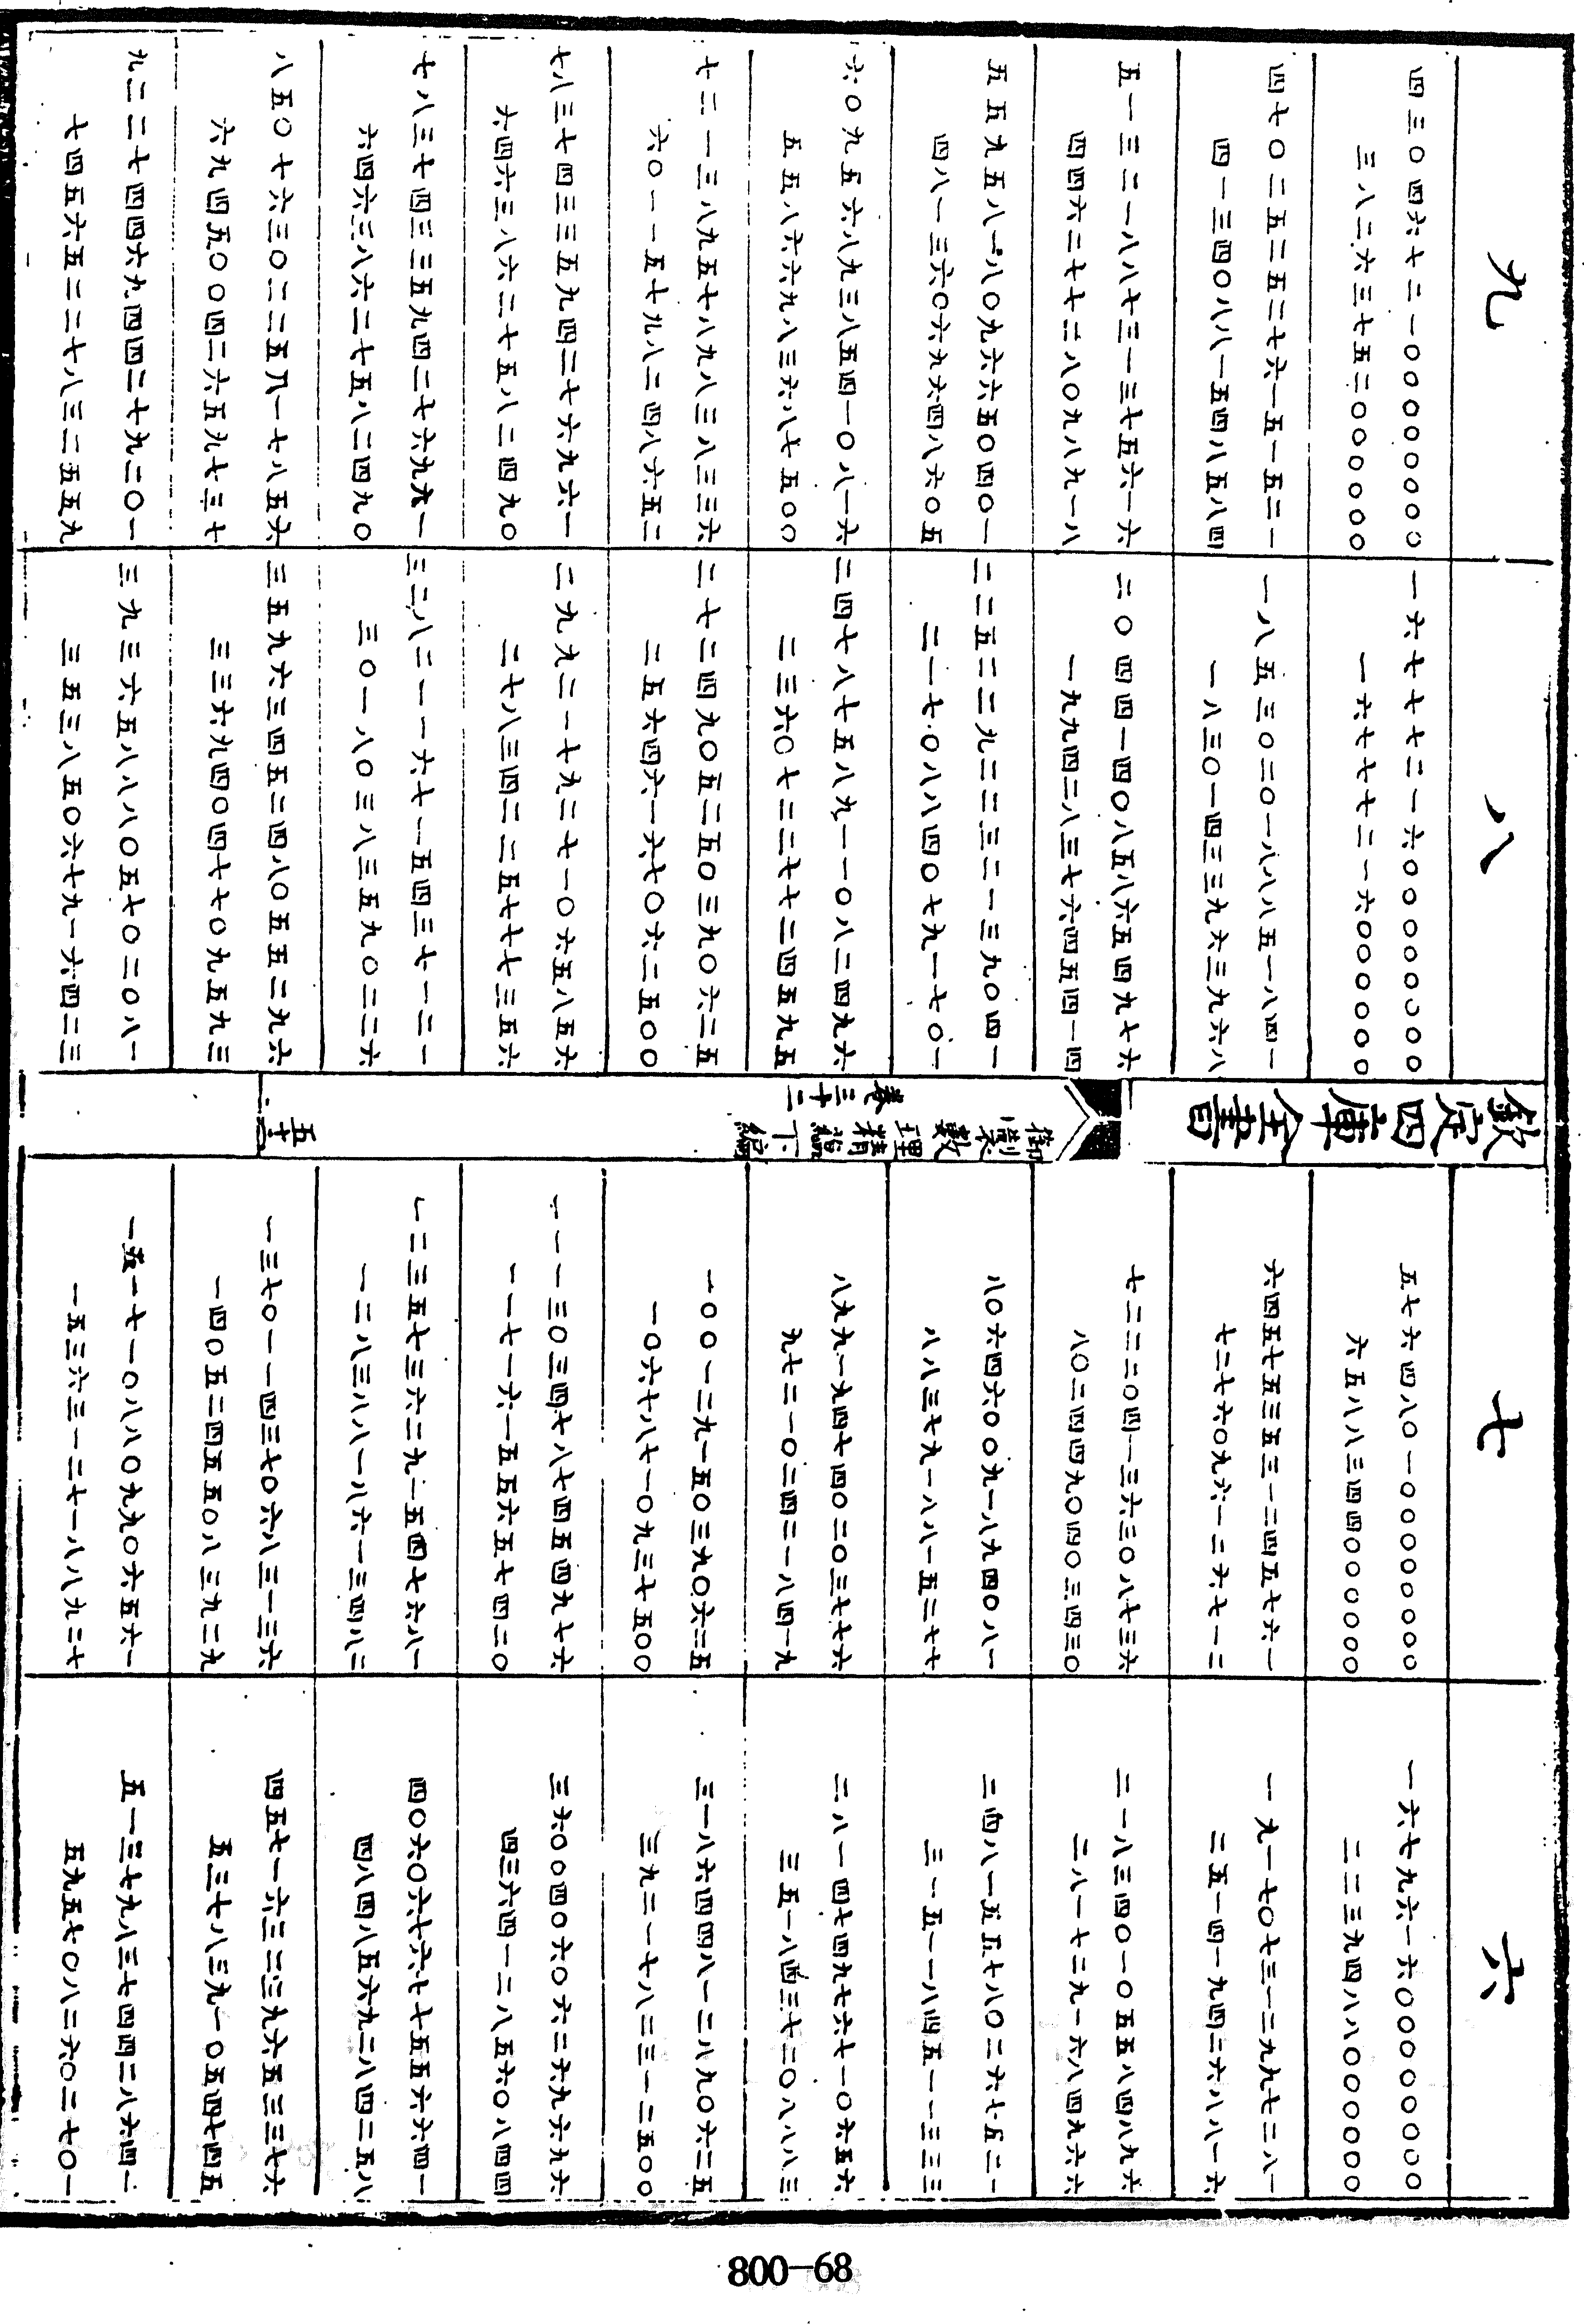 九
四三〇四六七二一〇〇〇〇〇〇〇〇
三八二六三七五二〇〇〇〇〇〇
四七〇二五二五二七六一五一五二一
四一三四〇八八一五四八五八四
五一三二一八八七三一三七五六一六
四四六二七七二八〇九八九一八
五五九五八一八〇九六六五〇四〇一
四八一三六〇六九六四八六〇五
六〇九五六八九三八五四一〇八一六
五五八六六九八三六八七五〇〇
七二一三八九五七八九八三八三三六
六〇一一五七九八二四八六五二
七八三七四三三五九四二七六九六一
六四六三八六二七五八二四九〇
七八三七四三三五九四二七六九九一
六四六三八六二七五八二四九〇
八五〇七六三〇二二五八一七八五六
六九四五〇〇四二六五九七三七
九二二七四四六九四四二七九二〇一
七四五六五二二七八三二五五九
八
一六七七七二一六〇〇〇〇〇〇〇〇
一六七七七二一六〇〇〇〇〇〇
一八五三〇二〇一八八八五一八四一
一八三〇一四三三九六三九六八
二〇四四一四〇八五八六五四九七六
一九九四二八三七六四五四一四
二二五二二九二二三二一三九〇四一
二一七〇八八四〇七九一七〇一
二四七八七五八九一一〇八二四九六
二三六〇七二二七七二四五九五
二七二四九〇五二五〇三九〇六二五
二五六四六一六七〇六二五〇〇
二九九二一七九二七一〇六五八五六
二七八三四二二五七七三五六
三二八二一一六七一五四三七一二一
三〇一八〇三八三五九〇二二六
三五九六三四五二四八〇五五二九六
三三六九四〇四七七〇九五九三
三九三六五八八八〇五七〇二〇八一
三五三八五〇六七九一六四二三
欽定四庫全書
御製數理精蘊下編
卷三十二
五十
七
五七六四八〇一〇〇〇〇〇〇〇〇
六五八八三四四〇〇〇〇〇〇
六四五七五三五三一二四五七六一
七二七六〇九六一二六七一二
七二二二〇四一三六三〇八七三六
八〇二四四九〇四〇三四三〇
八〇六四六〇〇九一八九四〇八一
八八三七九一八八一五二七七
八九九一九四七四〇二〇三七七六
九七二一〇二四二一八四一九
一〇〇一二九一五〇三九〇六二五
一〇六七八七一〇九三七五〇〇
一一一三〇三四七八七四五四九七六
一一七一六一五五六五七四二〇
一二三五七三六二九一五四七六八一
一二八三八八一八六一三四八二
一三七〇一一四三七〇六八三一三六
一四〇五二四五五〇八三九二九
一五一七一〇八八〇九九〇六五六一
一五三六三一二七一八八九二七
六
一六七九六一六〇〇〇〇〇〇〇〇
二二三九四八八〇〇〇〇〇〇
一九一七〇七三一二九九七二八一
二五一四一九四二六八八一六
二一八三四〇一〇五五八四八九六
二八一七二九一六八四九六六
二四八一五五七八〇二六七五二一
三一五一一八四五一一三三三
二八一四七四九七六七一〇六五六
三五一八四三七二〇八八八三
三一八六四四八一二八九〇六二五
三九二一七八二三一二五〇〇
三六〇〇四〇六〇六二六九六九六
四三六四一二八五六〇八四四
四〇六〇六七六七七五五六六四一
四八四八五六九二八四二五八
四五七一六三二三九六五三三七六
五三七八三九一〇五四七四五
五一三七九八三七四四二八六四一
五九五七〇八二六〇二七〇一
800-68